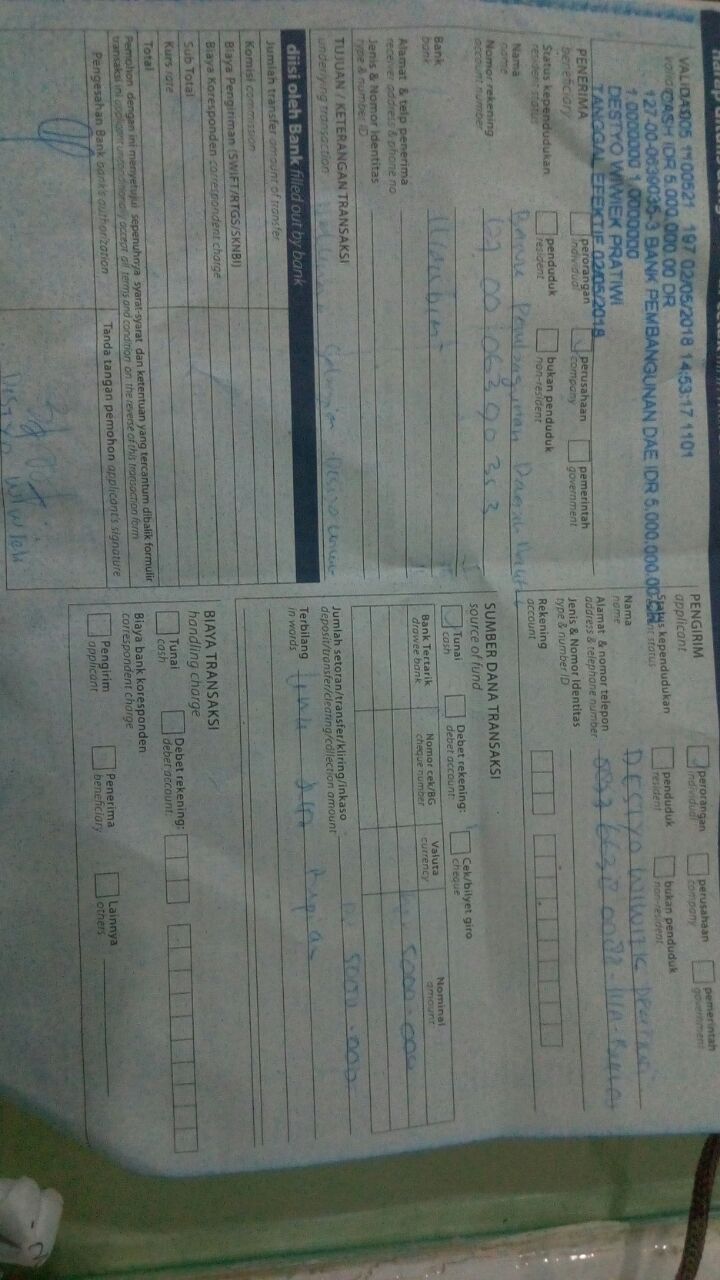 VALIDASI
05 1100521 197 02/05/2018 14:53:17 1101
CASH IDR 5.000.000,00 DR
127-00-0639035-3 BANK PEMBANGUNAN DAE IDR 5.000.000,00 CR
1.0000000 1.0000000
DESTYO WIWIEK PRATIWI
TANGGAL EFEKTIF 02/05/2018
PENERIMA
beneficiary
perorangan
individual
perusahaan
company
pemerintah
government
Status kependudukan
resident status
penduduk
resident
bukan penduduk
non-resident
Nama
name
Nomor rekening
account number
127 00 0639035 3
Bank
bank
Mandiri
Alamat & telp penerima
receiver address & phone no
Jenis & Nomor Identitas
type & number ID
TUJUAN / KETERANGAN TRANSAKSI
underlying transaction
diisi oleh Bank filled out by bank
Jumlah transfer amount of transfer
Komisi commission
Biaya Pengiriman (SWIFT/RTGS/SKNBI)
Biaya Koresponden correspondent charge
Sub Total
Kurs rate
Total
Pemohon dengan ini menyetujui sepenuhnya syarat-syarat dan ketentuan yang tercantum dibalik formulir
transaksi ini applicant unconditionally accept all terms and condition on the reverse of this transaction form
Pengesahan Bank bank's authorization
Tanda tangan pemohon applicant's signature
PENGIRIM
applicant
perorangan
individual
perusahaan
company
pemerintah
government
Status kependudukan
penduduk
resident
bukan penduduk
non-resident
Nama
name
DESTYO WIWIEK PRATIWI
Alamat & nomor telepon
address & telephone number
Jenis & Nomor Identitas
type & number ID
Rekening
account
SUMBER DANA TRANSAKSI
source of fund
Tunai
cash
Debet rekening:
debet account:
Cek/bilyet giro
cheque
Bank Tertarik
drawee bank
Nomor cek/BG
cheque number
Valuta
currency
Nominal
amount
5000.000
Jumlah setoran/transfer/kliring/inkaso
deposit/transfer/clearing/collection amount
5000.000
Terbilang
in words
lima juta rupiah
BIAYA TRANSAKSI
handling charge
Tunai
cash
Debet rekening:
debet account:
Biaya bank koresponden
correspondent charge
Pengirim
applicant
Penerima
beneficiary
Lainnya
others